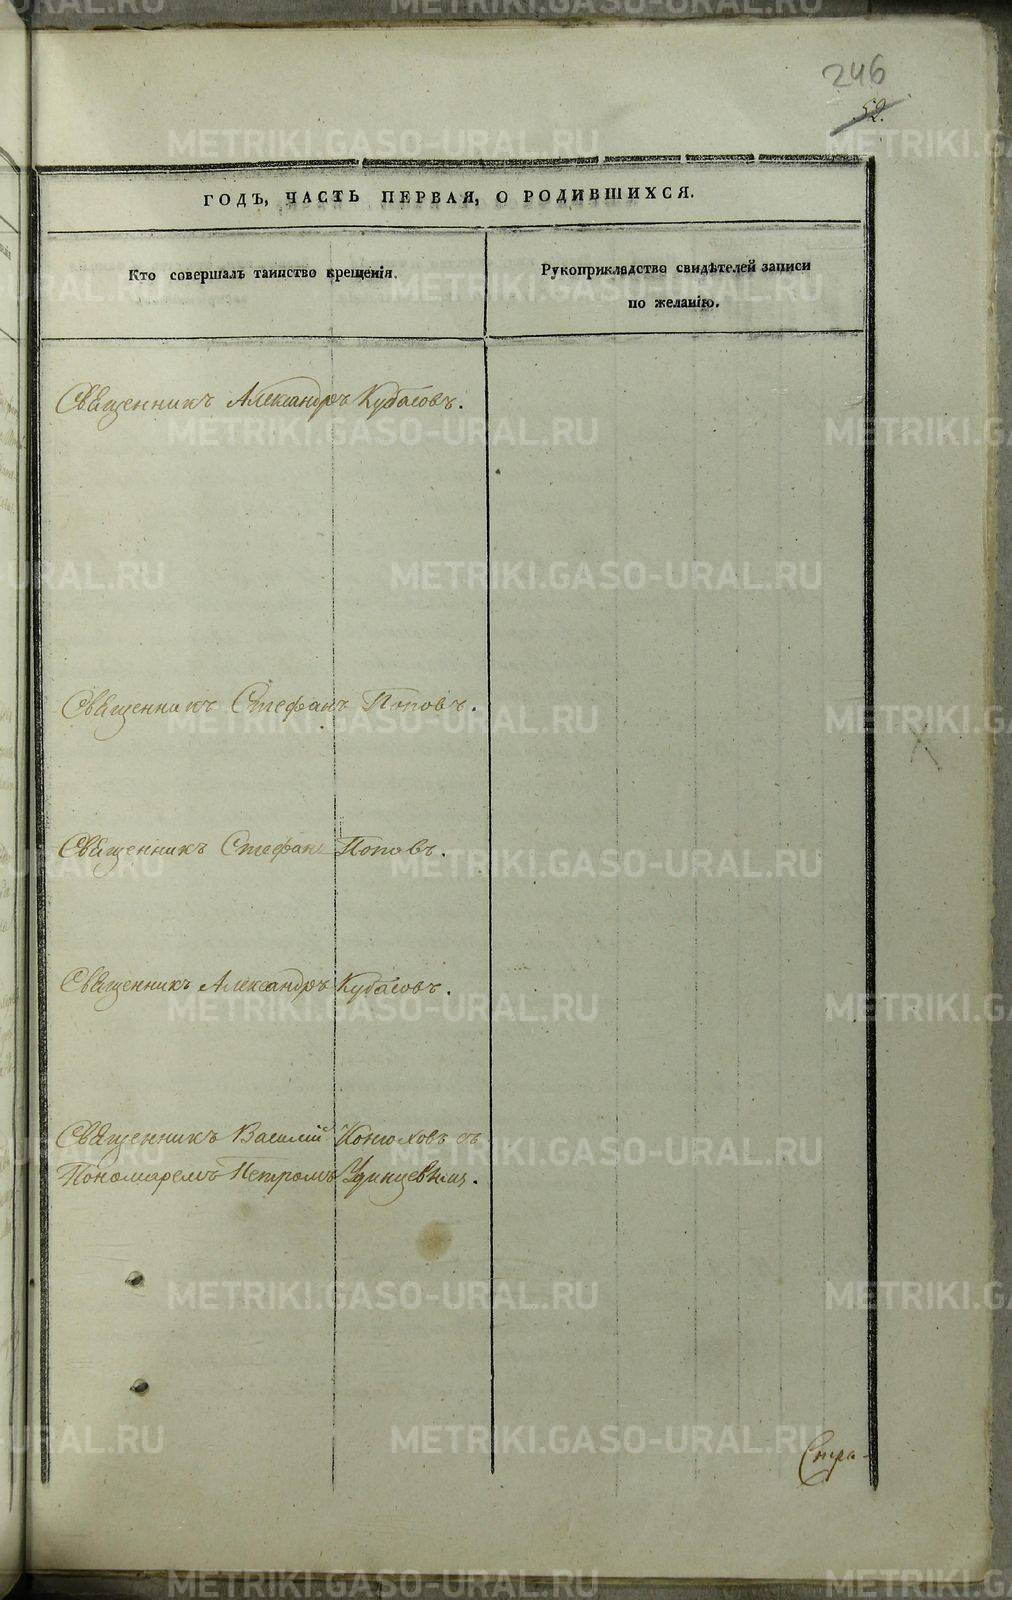 246
52.
ГОДЪ, ЧАСТЬ ПЕРВАЯ, О РОДИВШИХСЯ.
Кто совершалъ таинство крещенія.
Рукоприкладство свидѣтелей записи
по желанію.
Священникъ Александръ Кубасовъ.
Священникъ Стефанъ Поповъ.
Священникъ Стефанъ Поповъ.
Священникъ Александръ Кубасовъ.
Священникъ Василій Конюховъ съ
Пономаремъ Петромъ Удинцевым.
METRIKI.GASO-URAL.RU